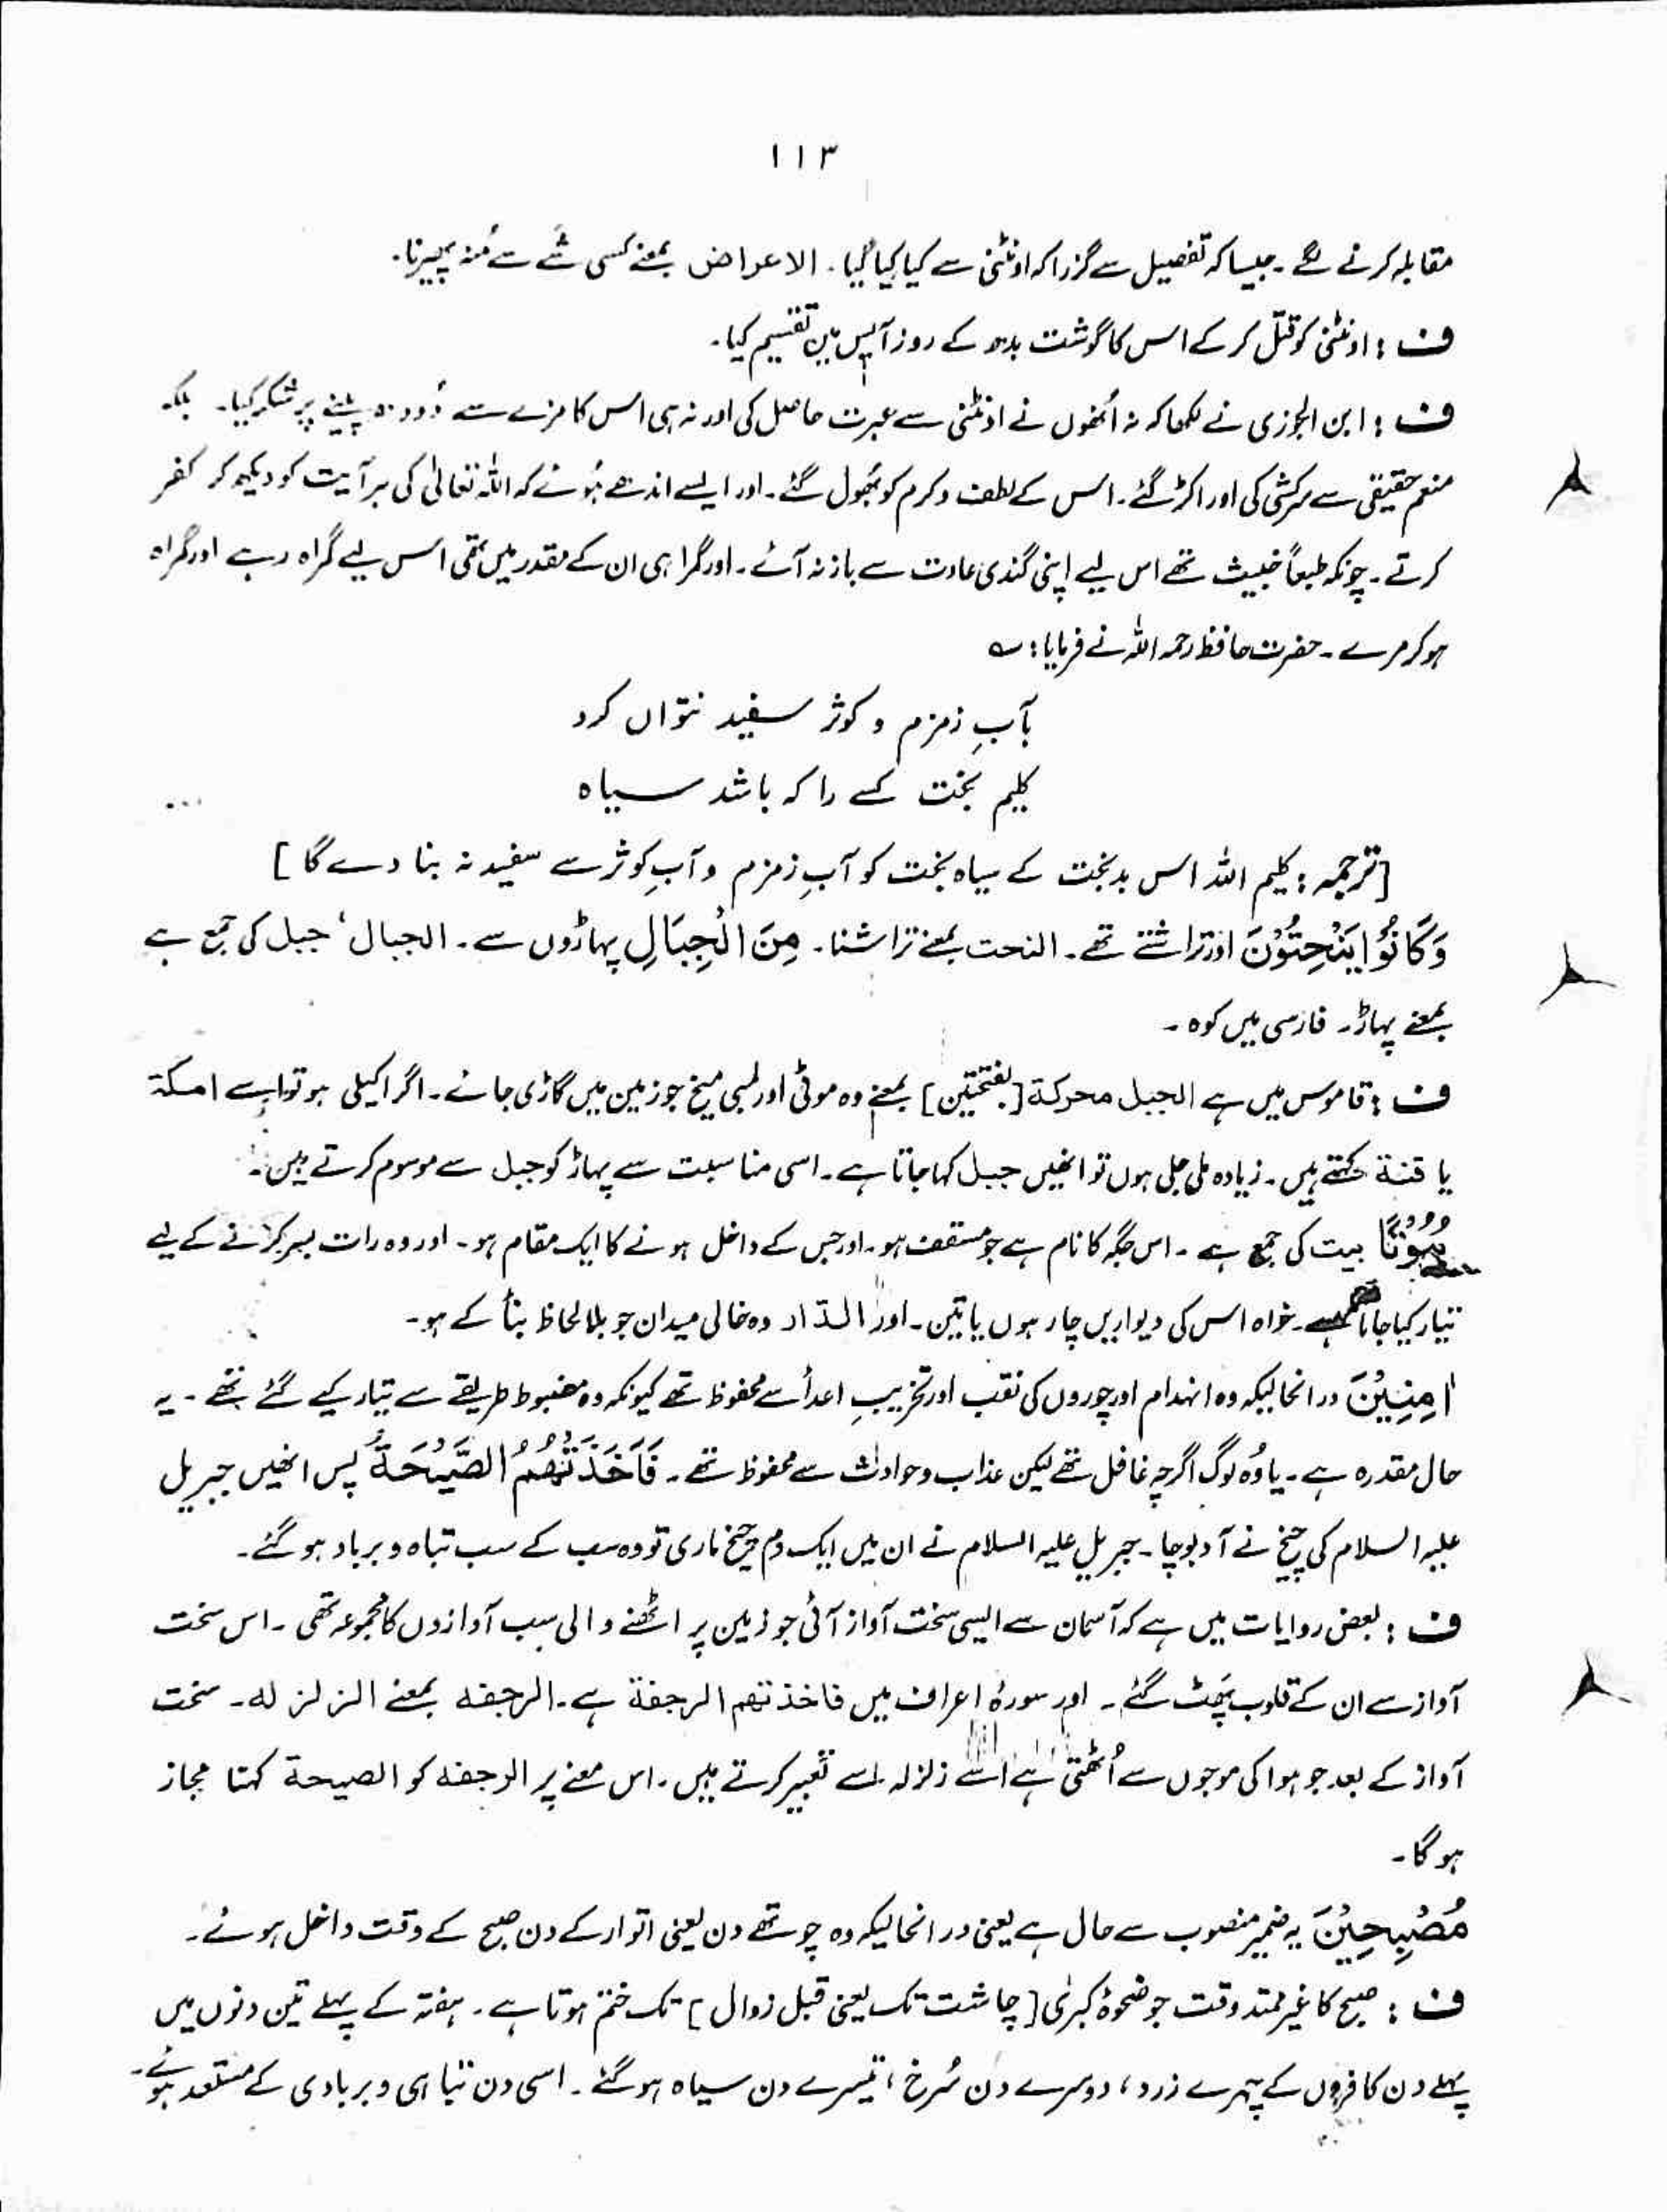 ۱۱۳
مقابلہ کرنے لگے۔ جیسا کہ تفصیل سے گزرا کہ اونٹنی سے کیا کیا گیا۔ الاعراض بمعنے کسی شے سے مُنہ پھیرنا۔
ف : اونٹنی کو قتل کر کے اس کا گوشت بدھ کے روز آپس میں تقسیم کیا۔
ف : ابن الجوزی نے لکھا کہ نہ اُنھوں نے اونٹنی سے عبرت حاصل کی اور نہ ہی اس کا مزے سے دُودھ پینے پر شکر کیا۔ بلکہ
منعم حقیقی سے سرکشی کی اور اکڑ گئے۔ اس کے لطف و کرم کو بُھول گئے۔ اور ایسے اندھے ہُوئے کہ اللہ تعالیٰ کی ہر آیت کو دیکھ کر کفر
کرتے۔ چونکہ طبعاً خبیث تھے اس لیے اپنی گندی عادت سے باز نہ آئے۔ اور گمراہی ان کے مقدر میں تھی اس لیے گمراہ رہے اور گمراہ
ہو کر مرے۔ حضرت حافظ رحمہ اللہ نے فرمایا : ؎
بآبِ زمزم و کوثر سفید نتواں کرد
کلیم بخت کسے را کہ باشد سیاہ
[ترجمہ : کلیم اللہ اس بدبخت کے سیاہ بخت کو آبِ زمزم و آبِ کوثر سے سفید نہ بنا دے گا]
وَكَانُوْا يَنْحِتُوْنَ اور تراشتے تھے۔ النحت بمعنے تراشنا۔ مِنَ الْجِبَالِ پہاڑوں سے۔ الجبال ، جبل کی جمع ہے
بمعنے پہاڑ۔ فارسی میں کوہ۔
ف : قاموس میں ہے الجبل محركة [بفتحتین] بمعنے وہ موٹی اور لمبی میخ جو زمین میں گاڑی جائے۔ اگر اکیلی ہو تو اسے امكة
یا قنة کہتے ہیں۔ زیادہ ملی جلی ہوں تو انھیں جبل کہا جاتا ہے۔ اسی مناسبت سے پہاڑ کو جبل سے موسوم کرتے ہیں۔
بُيُوْتًا بیت کی جمع ہے۔ اس جگہ کا نام ہے جو مسقف ہو۔ اور جس کے داخل ہونے کا ایک مقام ہو۔ اور وہ رات بسر کرنے کے لیے
تیار کیا جاتا ہے۔ خواہ اس کی دیواریں چار ہوں یا تین۔ اور الدّار وہ خالی میدان جو بلا لحاظ بنأ کے ہو۔
اٰمِنِيْنَ در انحالیکہ وہ انہدام اور چوروں کی نقب اور تخریبِ اعدأ سے محفوظ تھے کیونکہ وہ مضبوط طریقے سے تیار کیے گئے تھے۔ یہ
حال مقدرہ ہے۔ یا وُہ لوگ اگرچہ غافل تھے لیکن عذاب و حوادث سے محفوظ تھے۔ فَاَخَذَتْهُمُ الصَّيْحَةُ پس انھیں جبریل
علیہ السلام کی چیخ نے آ دبوچا۔ جبریل علیہ السلام نے ان میں ایک دم چیخ ماری تو وہ سب کے سب تباہ و برباد ہو گئے۔
ف : بعض روایات میں ہے کہ آسمان سے ایسی سخت آواز آئی جو زمین پر اٹھنے والی سب آوازوں کا مجموعہ تھی۔ اس سخت
آواز سے ان کے قلوب پَھٹ گئے۔ اور سورۂ اعراف میں فاخذتهم الرجفة ہے۔ الرجفه بمعنے الزلزله۔ سخت
آواز کے بعد جو ہوا کی موجوں سے اُٹھتی ہے اسے زلزلہ سے تعبیر کرتے ہیں۔ اس معنے پر الرجفه کو الصيحة کہنا مجاز
ہوگا۔
مُصْبِحِيْنَ یہ ضمیر منصوب سے حال ہے یعنی در انحالیکہ وہ چوتھے دن یعنی اتوار کے دن صبح کے وقت داخل ہوئے۔
ف : صبح کا غیر ممتد وقت جو ضحوۂ کبریٰ [چاشت تک یعنی قبل زوال] تک ختم ہوتا ہے۔ ہفتہ کے پہلے تین دنوں میں
پہلے دن کافروں کے چہرے زرد ، دوسرے دن سُرخ ، تیسرے دن سیاہ ہو گئے۔ اسی دن تباہی و بربادی کے مستعد ہوئے۔